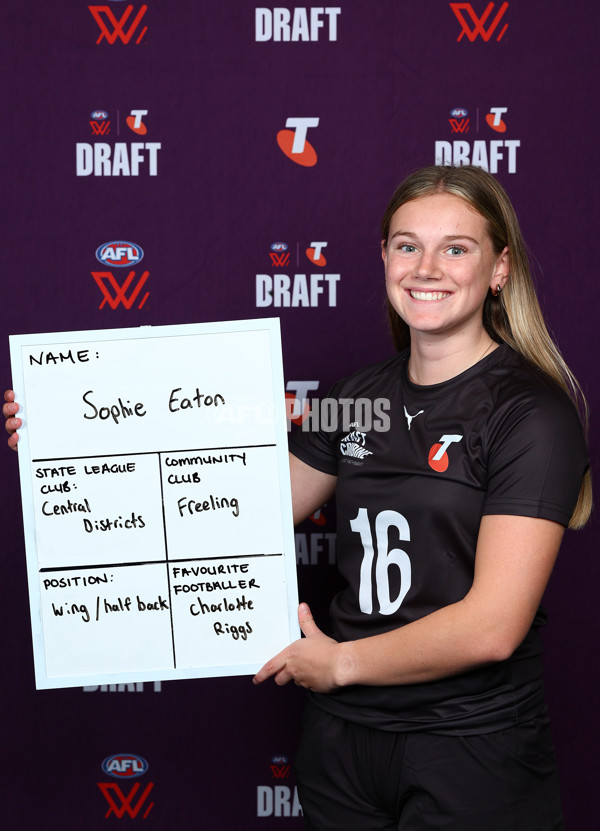 DRAFT
AFL
T
DRAFT
T
AFL
T
DRAFT
AFL
AFL
T
DRAFT
NAME:
Sophie Eaton
AFL PHOTOS
STATE LEAGUE
CLUB:
Central
Districts
COMMUNITY
CLUB
Freeling
POSITION:
Wing/half back
FAVOURITE
FOOTBALLER
Charlotte
Riggs
T
16
DRAFT
DRAFT
AFL
AFL
DRAFT